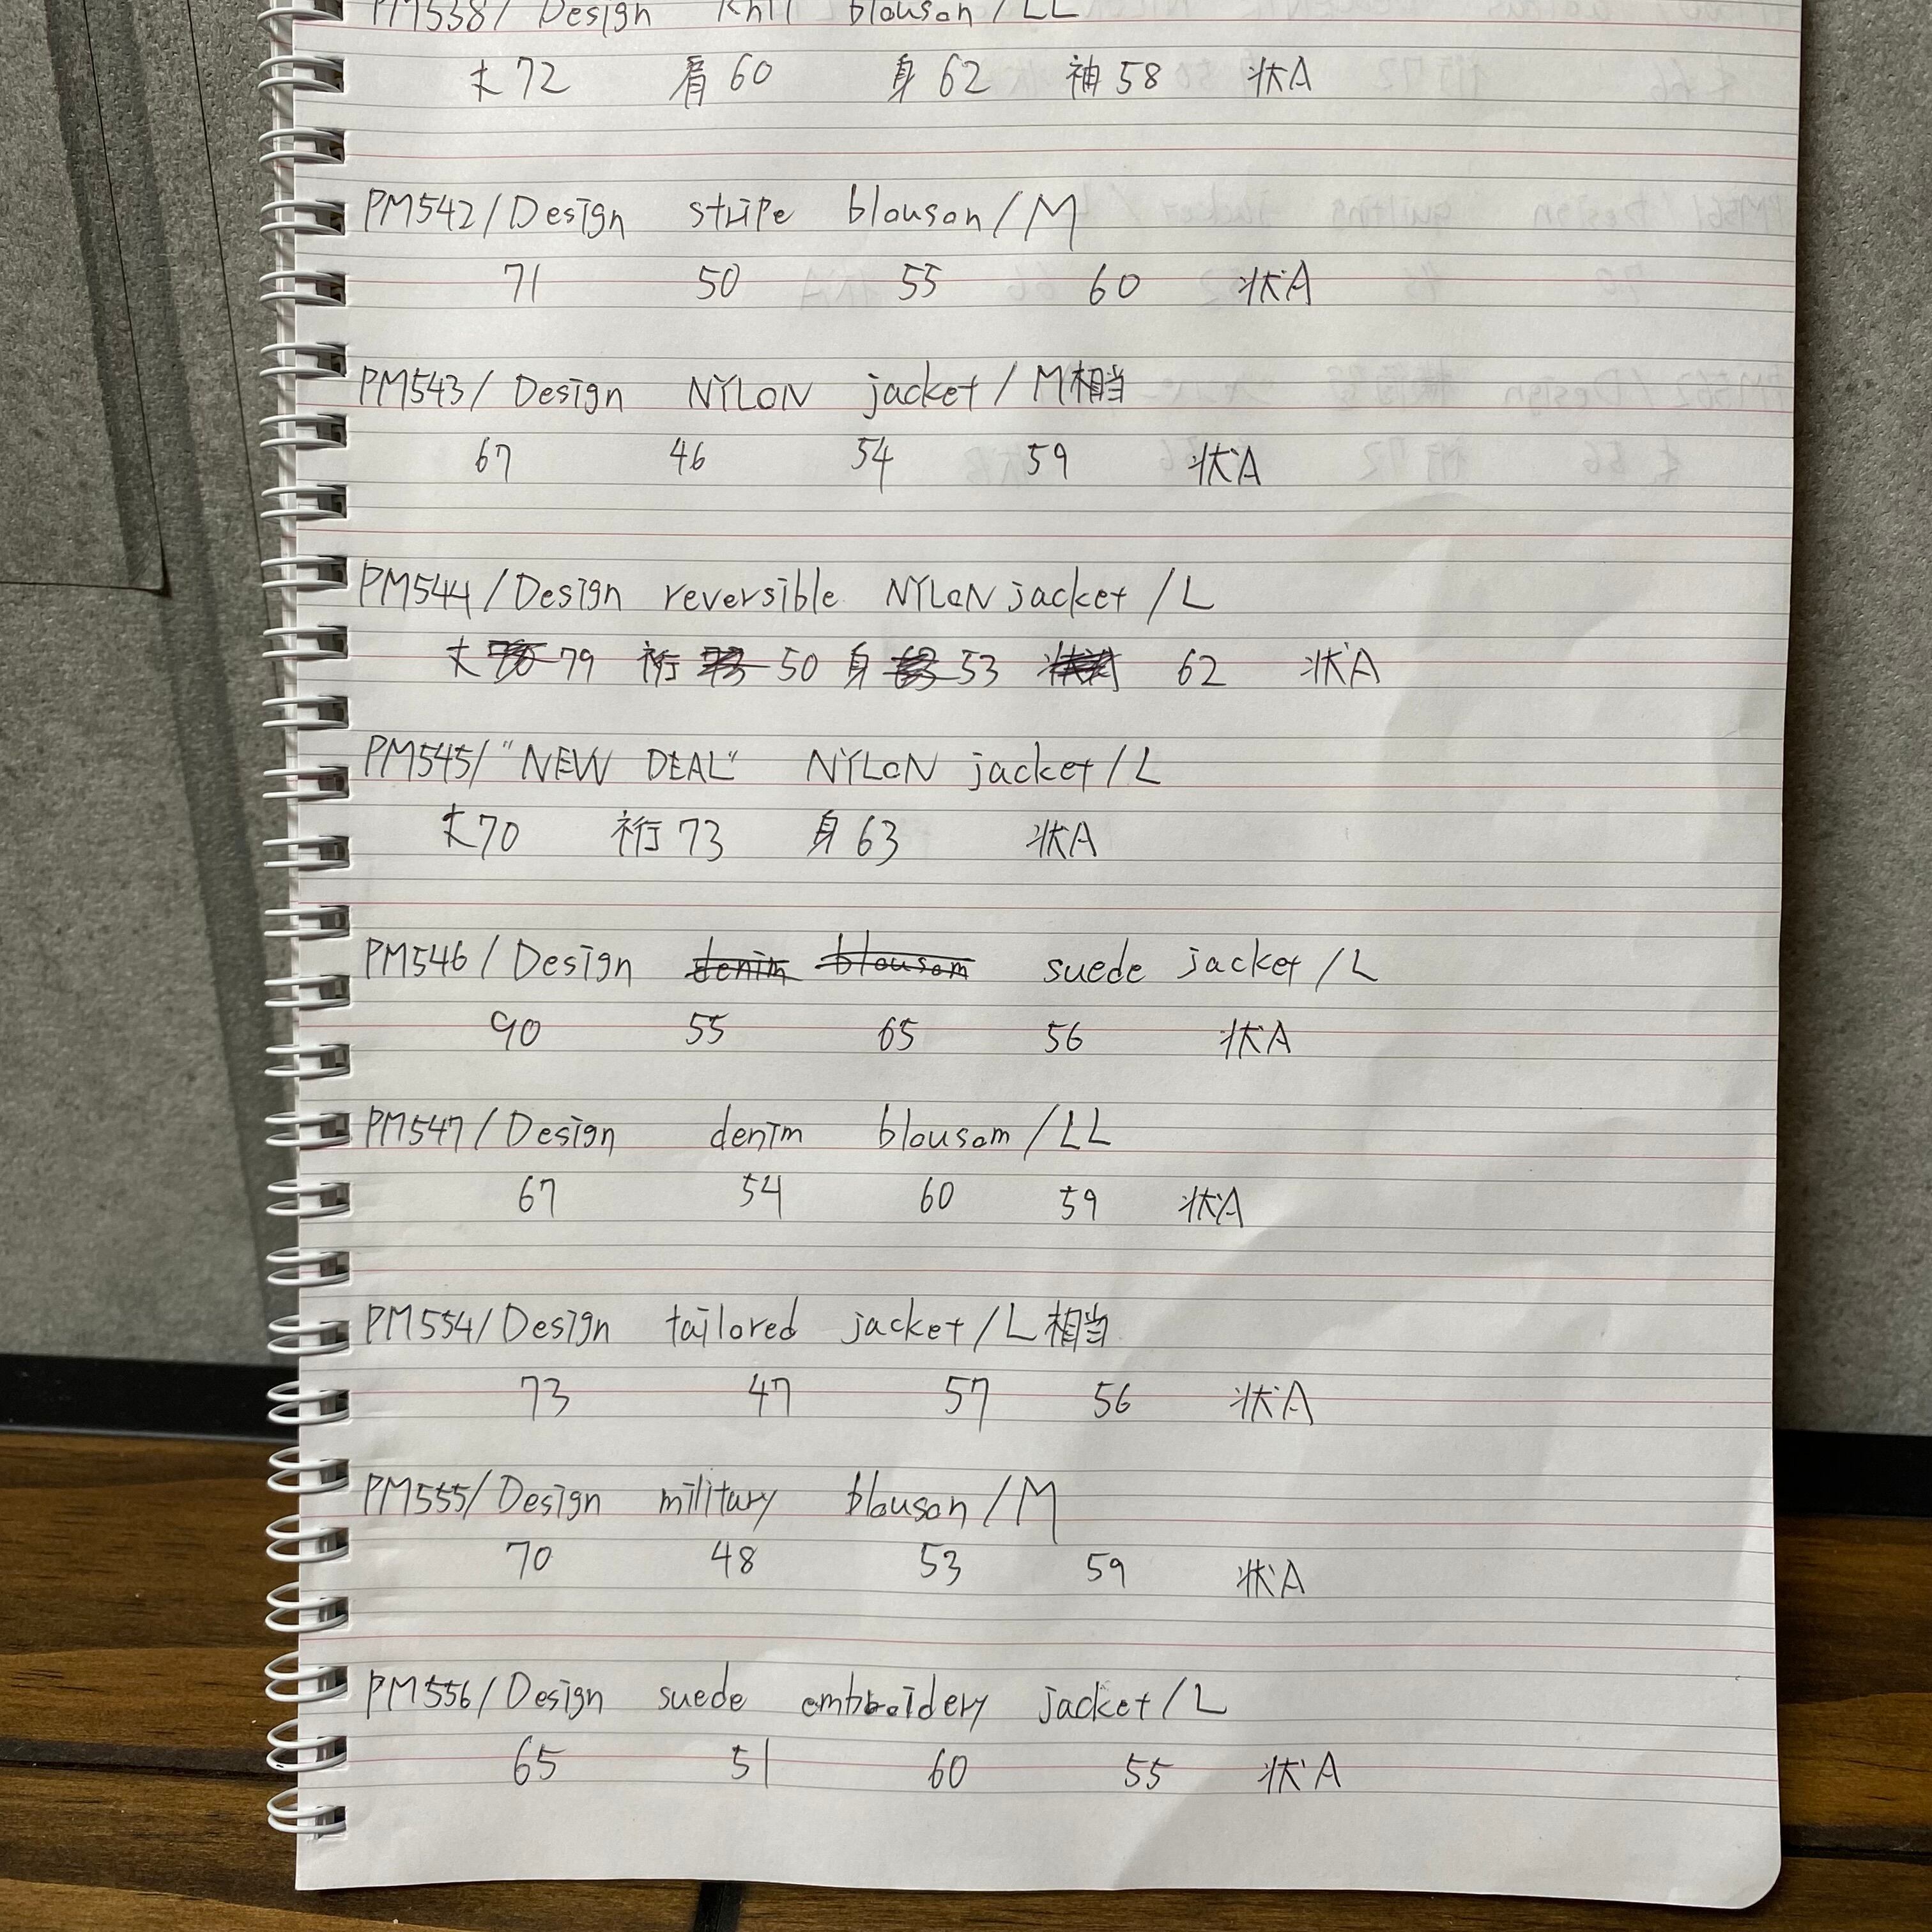 PM538/Design knit blouson/LL
丈72 肩60 身62 袖58 状A
PM542/Design stripe blouson/M
71 50 55 60 状A
PM543/Design NYLON jacket/M相当
67 46 54 59 状A
PM544/Design reversible NYLON jacket/L
丈 79 裄 50 身 53 62 状A
PM545/"NEW DEAL" NYLON jacket/L
丈70 裄73 身63 状A
PM546/Design denim blousom suede jacket/L
90 55 65 56 状A
PM547/Design denim blousom/LL
67 54 60 59 状A
PM554/Design tailored jacket/L相当
73 47 57 56 状A
PM555/Design military blouson/M
70 48 53 59 状A
PM556/Design suede embroidery jacket/L
65 51 60 55 状A